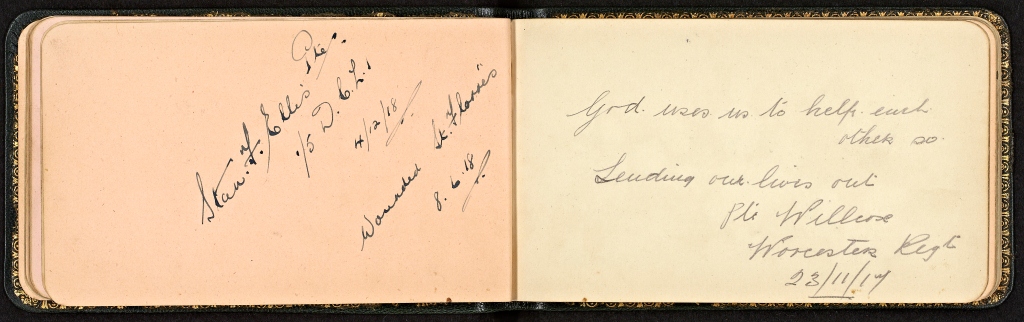 Stan. F. Ellis Pte.
1/5 D.C.L.I
4/12/18
Wounded St. Floris
8.6.18
God uses us to help each
other so.
Lending our lives out
Pte Willcox
Worcesters Regt
23/11/17